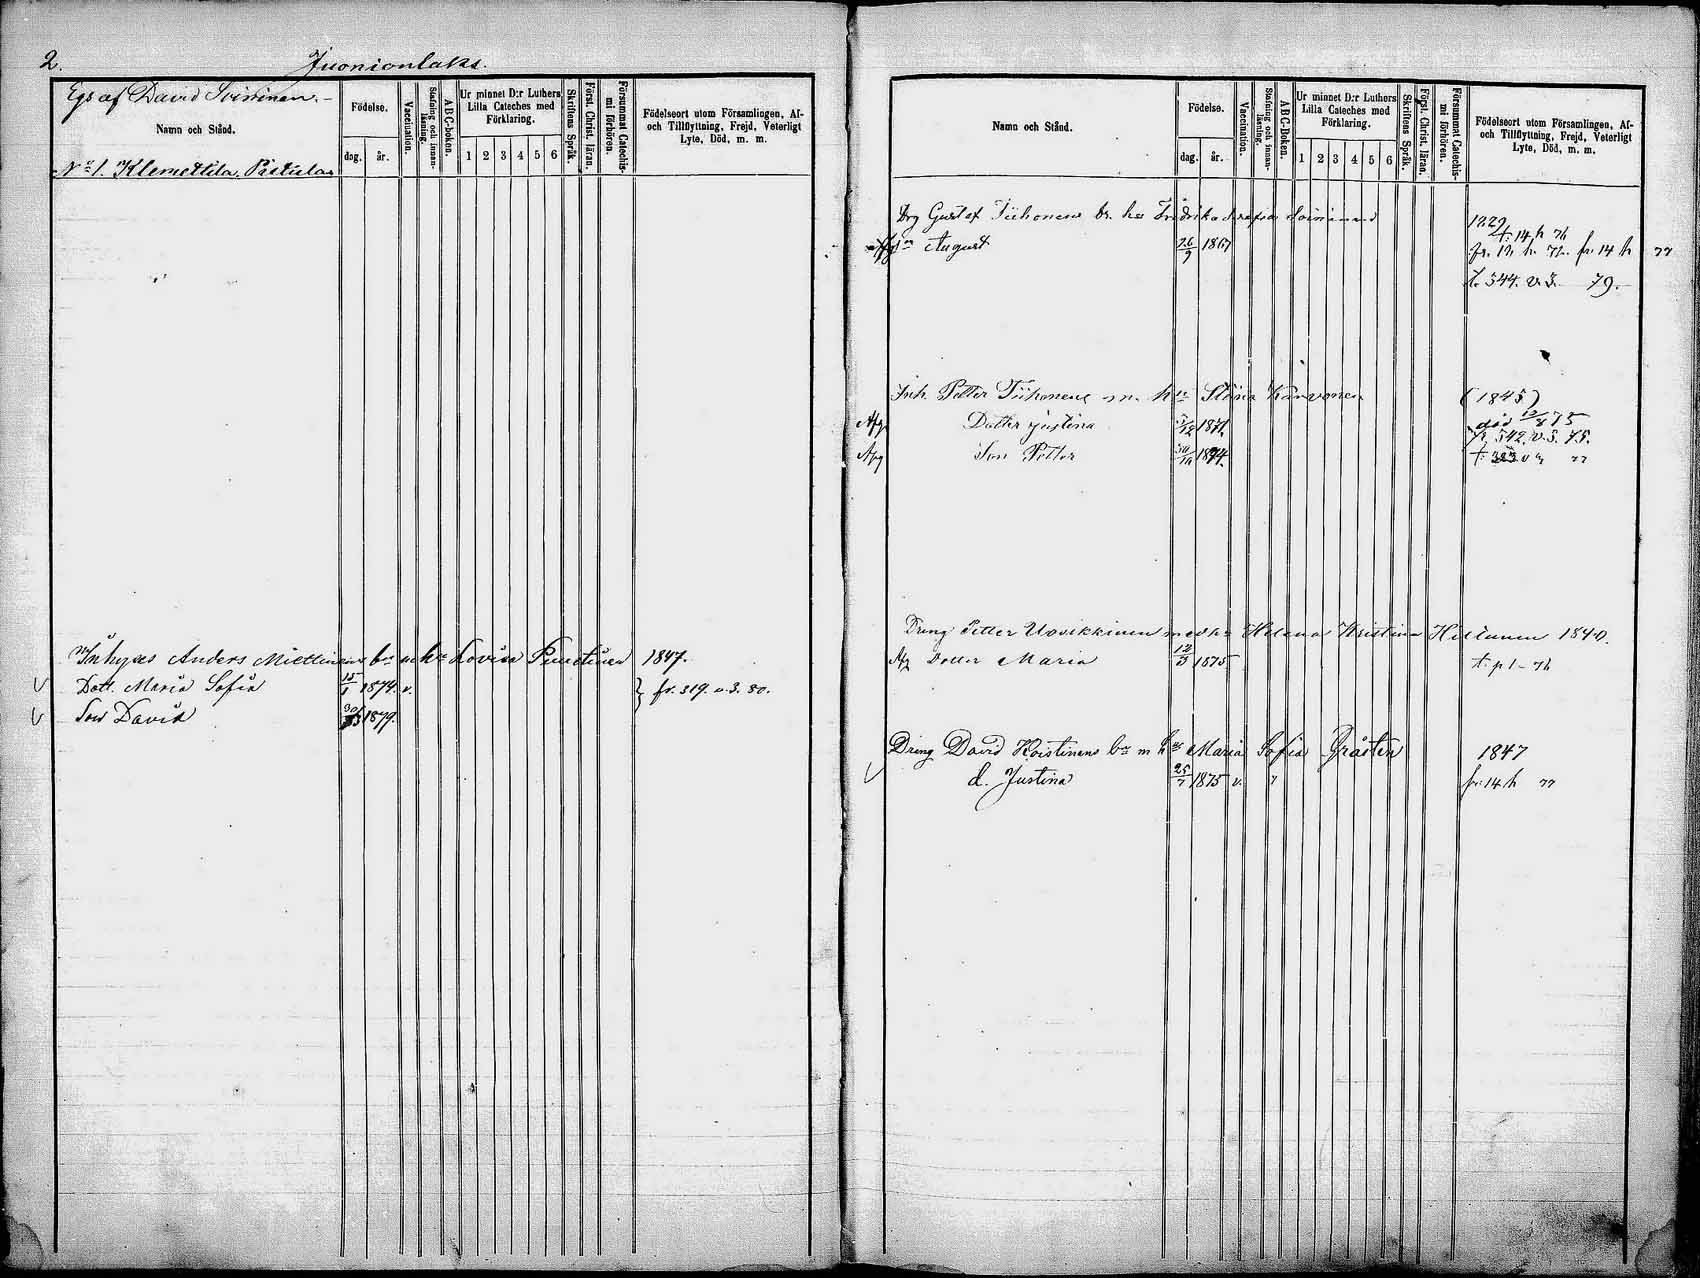 2.
Juonionlaks.
Egs af David Soininen.
Namn och Stånd.
Födelse.
dag.
år.
Vaccination.
Stafning och innan-läsning.
ABC-boken.
Ur minnet D:r Luthers
Lilla Cateches med
Förklaring.
1 2 3 4 5 6
Skriftens Språk.
Förkl. Christ. läran.
Försummat Catechis-
mi förhören.
Födelseort utom Församlingen, Af-
och Tillflyttning, Frejd, Veterligt
Lyte, Död, m. m.
No 1. Klemettila
Inhyses Anders Miettinens br m hu Lovisa 1847.
Dott. Maria Sofia 15/1 1874. v. } fr. 319. v. 3. 80.
Son David 1879.
Namn och Stånd.
Födelse.
dag.
år.
Vaccination.
Stafning och innan-läsning.
ABC-Boken.
Ur minnet D:r Luthers
Lilla Cateches med
Förklaring.
1 2 3 4 5 6
Skriftens Språk.
Först. Christ. läran.
Försummat Catechis-
mi förhören.
Födelseort utom Församlingen, Af-
och Tillflyttning, Frejd, Veterligt
Lyte, Död, m. m.
Drg Gustaf Tiihonens br hu Fredrika Soininen
t. 14 h 76
August 26/9 1867 fr. 14 h 77
t. 344. v. 3. 79.
Inh. Petter Tiihonens m. hu Karvonen (1845)
död 12/8 75
Afg Dotter Justina 1871. 342. v. 3. 75.
Afg Son Petter 30/10 1874. 77
Dreng Petter Uosikkinen med hu Helena Kristina Hiltunen 1840.
Afg Dotter Maria 12/3 1875 t. p 1 - 76
Dreng David Koistinens br m hu Maria Sofia Gråsten 1847
d. Justina 25/7 1875 v. fr. 14 h 77